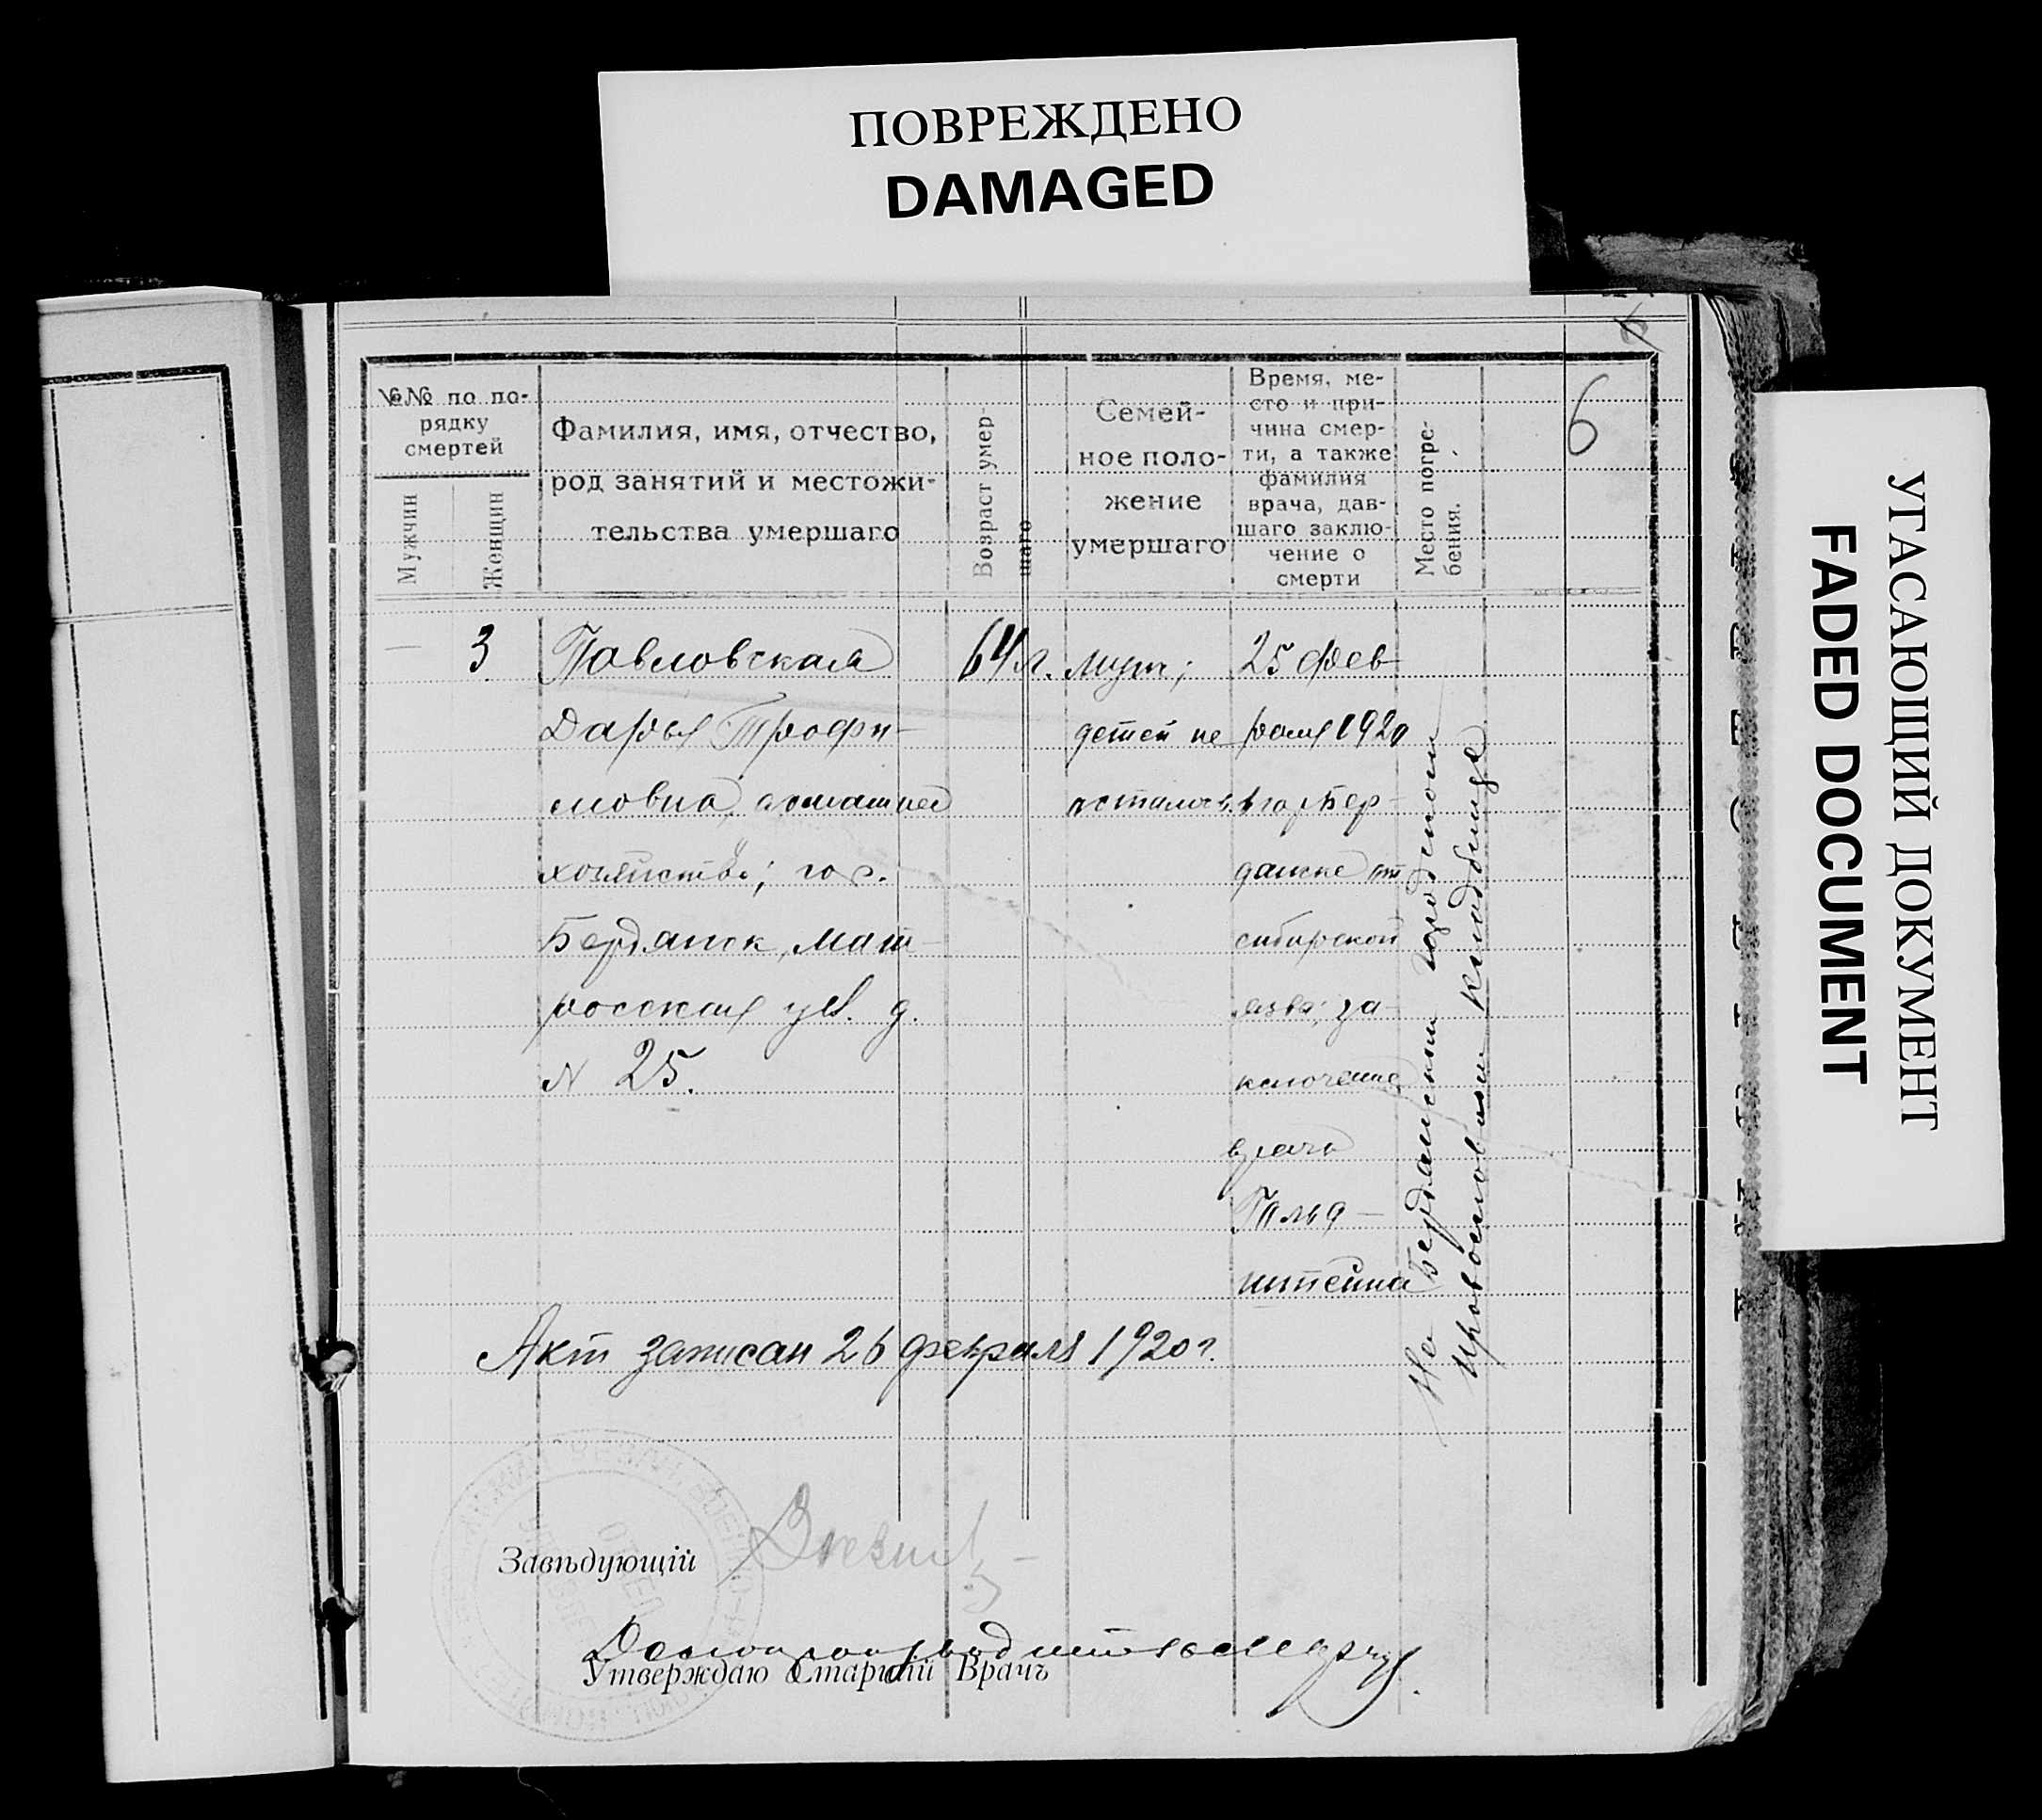 ПОВРЕЖДЕНО
DAMAGED
УГАСАЮЩИЙ ДОКУМЕНТ
FADED DOCUMENT
6
№№ по по-
рядку
смертей
Мужчин
Женщин
Фамилия, имя, отчество,
род занятий и местожи-
тельства умершаго
Возраст умер-
шаго
Семей-
ное поло-
жение
умершаго
Время, ме-
сто и при-
чина смер-
ти, а также
фамилия
врача, дав-
шаго заклю-
чение о
смерти
Место погре-
бения.
— 3
Павловская
Дарья Трофи-
мовна, домашнее
хозяйство; гор.
Бердянск, Мат-
росская ул. д.
N 25.
64 л.
муж;
детей не
осталось.
25 фев-
раля 1920
в гор Бер-
дянске от
сибирской
язвы; за-
ключение
врача
Гольд-
штейна
На Бердянском городском
православном кладбище
Акт записан 26 февраля 1920 г.
Завѣдующій
Делопроизводитель
Утверждаю Старшій Врачъ